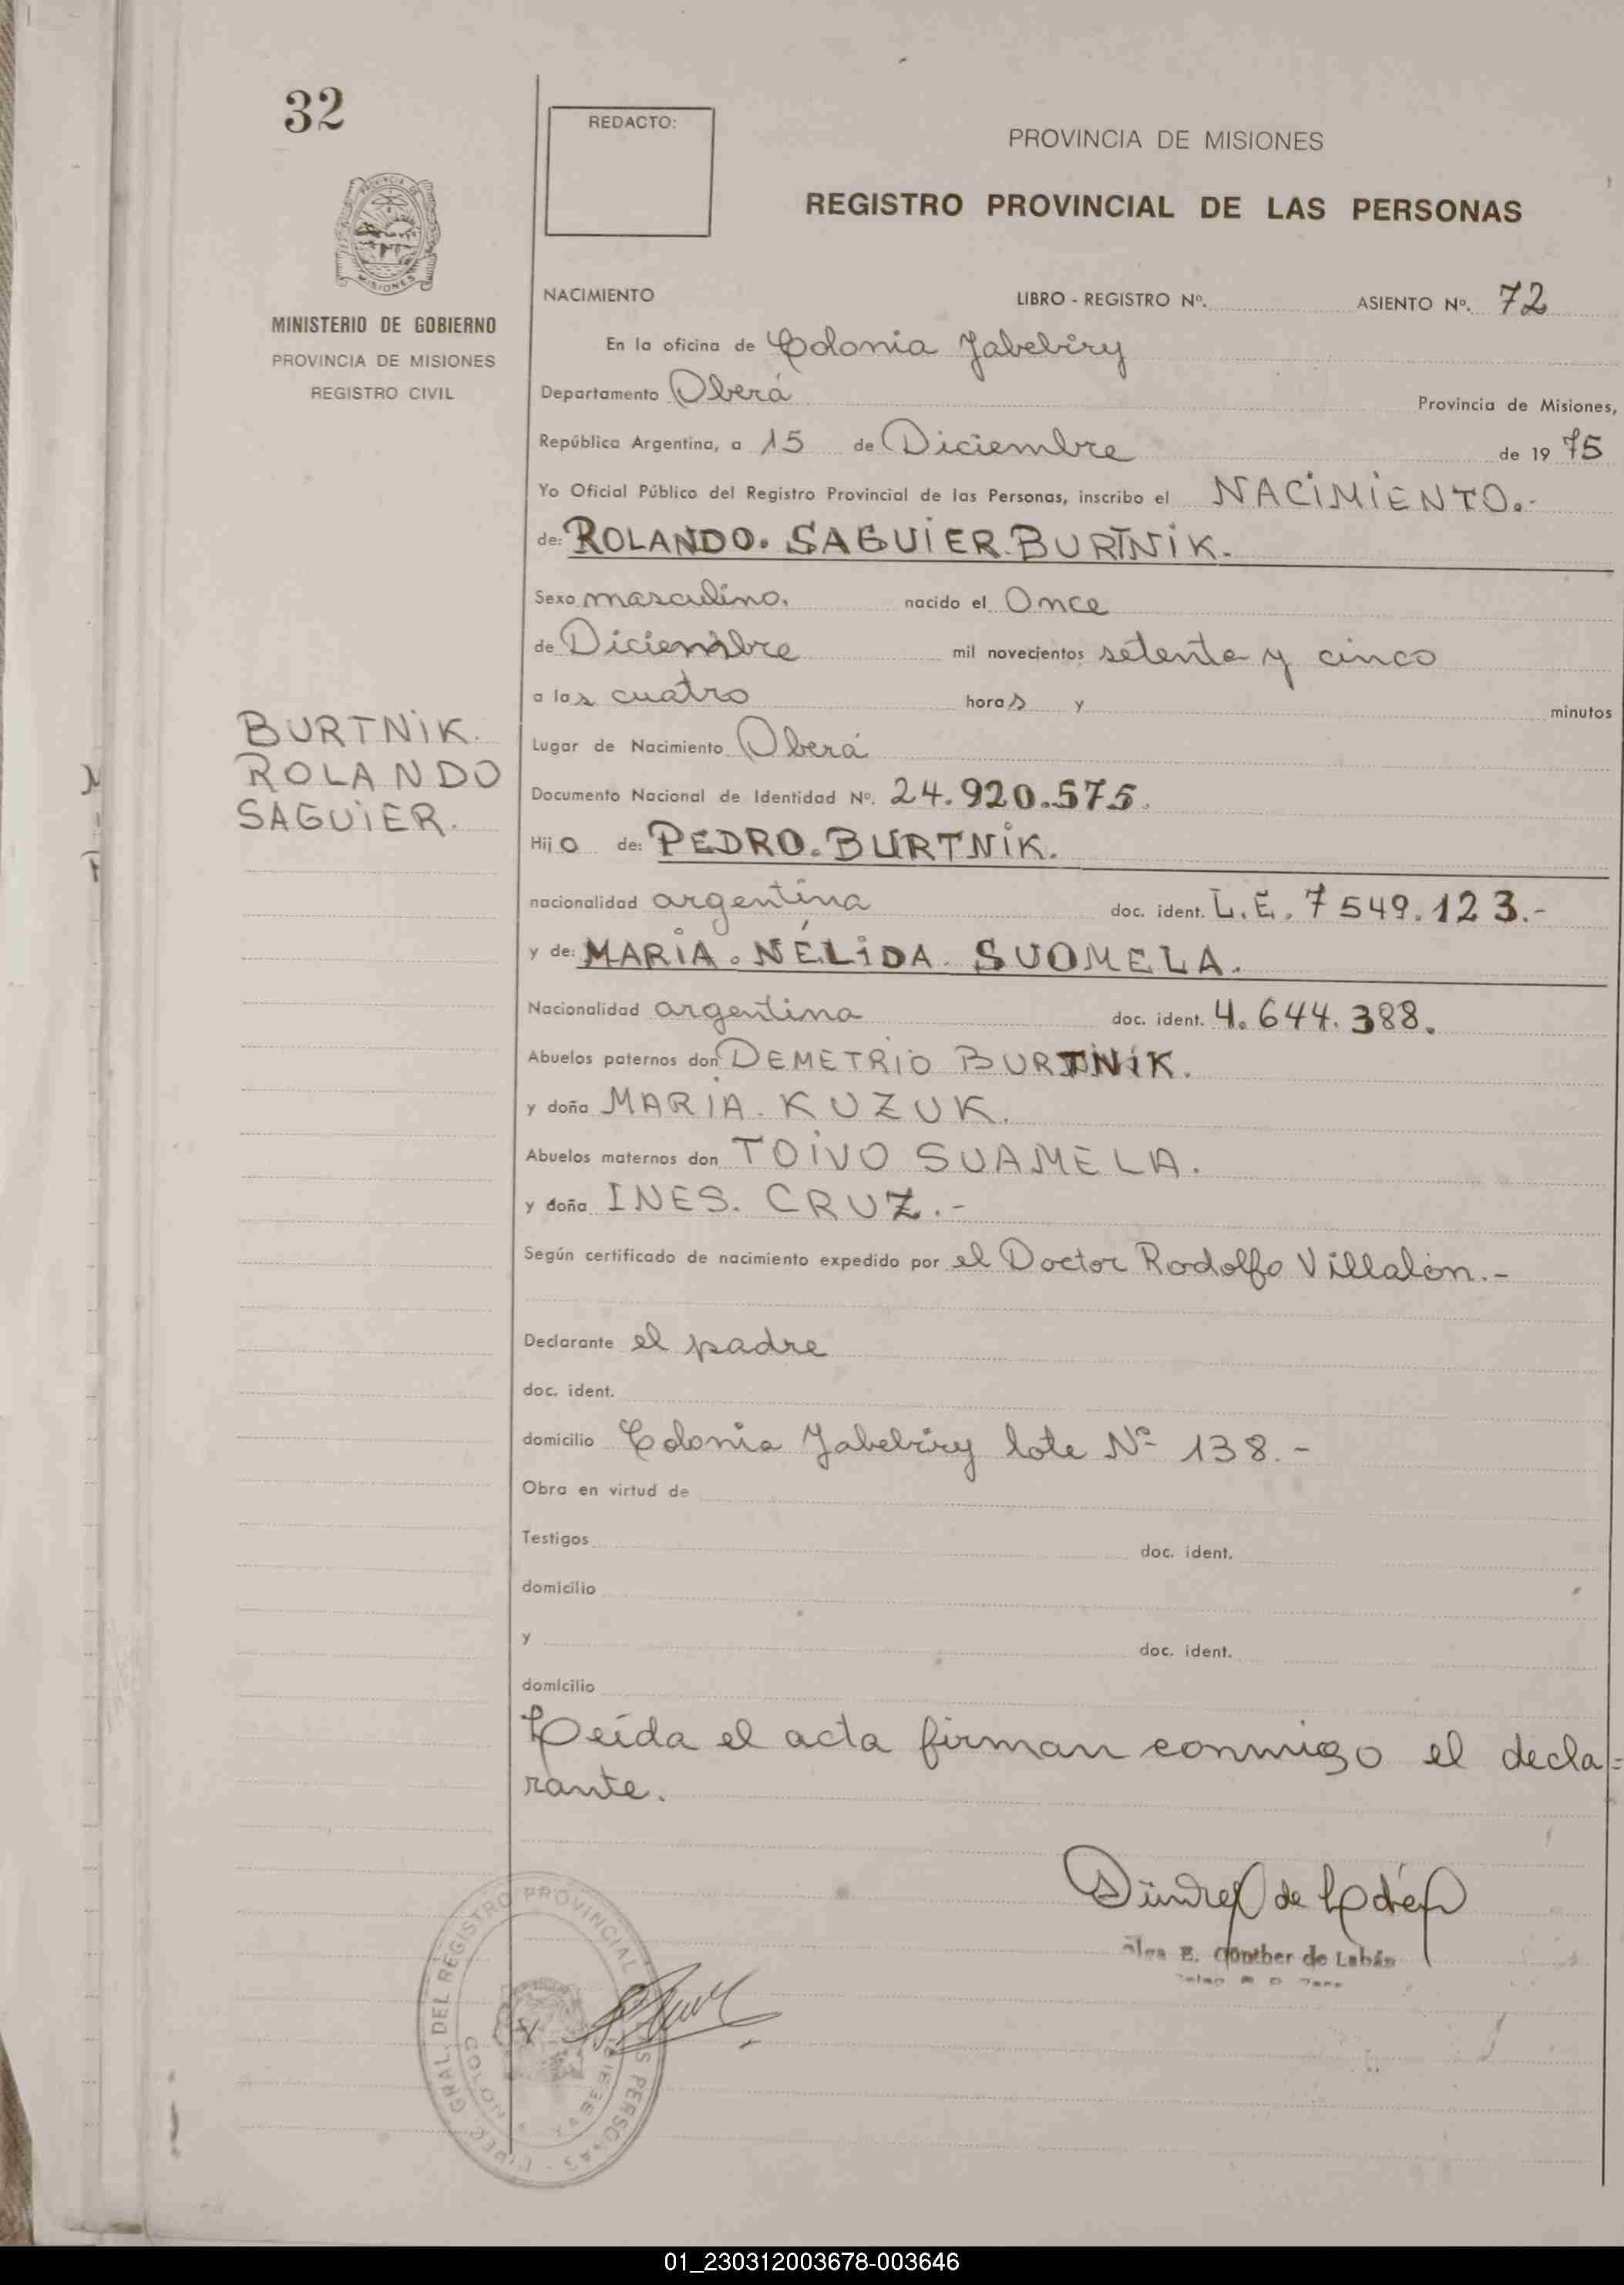 32
REDACTO:
PROVINCIA DE MISIONES
REGISTRO PROVINCIAL DE LAS PERSONAS
PROVINCIA DE
MISIONES
MINISTERIO DE GOBIERNO
PROVINCIA DE MISIONES
REGISTRO CIVIL
NACIMIENTO LIBRO - REGISTRO Nº. ASIENTO Nº. 72
En la oficina de Colonia Yabebiry
Departamento Oberá Provincia de Misiones,
República Argentina, a 15 de Diciembre de 19 75
Yo Oficial Público del Registro Provincial de las Personas, inscribo el NACIMIENTO.-
de: ROLANDO. SAGUIER. BURTNIK.
Sexo masculino. nacido el Once
de Diciembre mil novecientos setenta y cinco
a las cuatro horas y minutos
Lugar de Nacimiento Oberá
BURTNIK.
ROLANDO
SAGUIER.
Documento Nacional de Identidad Nº. 24.920.575.
Hijo de: PEDRO. BURTNIK.
nacionalidad argentina doc. ident. L.E. 7549.123.-
y de: MARIA. NÉLIDA. SUOMELA.
Nacionalidad argentina doc. ident. 4.644.388.
Abuelos paternos don DEMETRIO BURTNIK.
y doña MARIA. KUZUK.
Abuelos maternos don TOIVO SUAMELA.
y doña INES. CRUZ.-
Según certificado de nacimiento expedido por el Doctor Rodolfo Villalón.-
Declarante el padre
doc. ident.
domicilio Colonia Yabebiry lote Nº 138.-
Obra en virtud de
Testigos doc. ident.
domicilio
y doc. ident.
domicilio
Leída el acta firman conmigo el decla=
rante.
Olga E. Günther de Labán
DIREC. GRAL. DEL REGISTRO PROVINCIAL DE LAS PERSONAS
COLONIA YABEBIRI
01_230312003678-003646